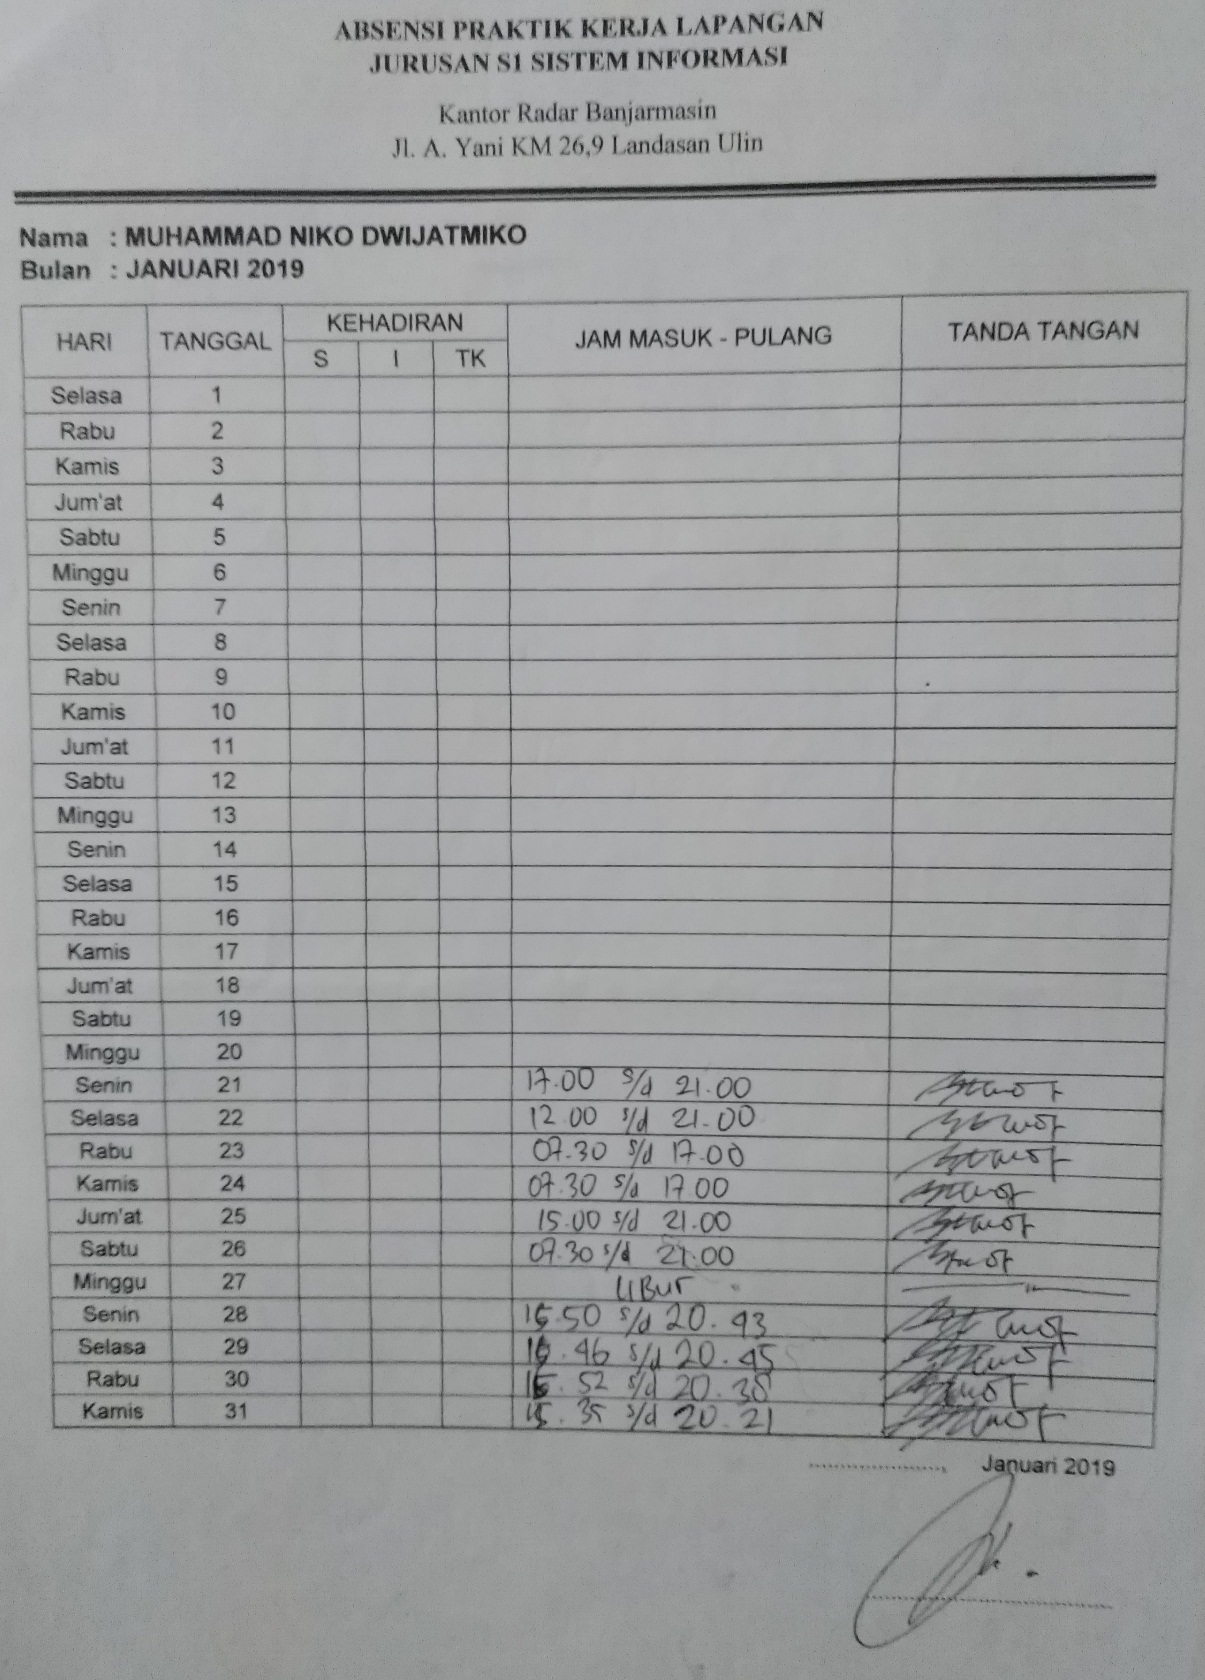 ABSENSI PRAKTIK KERJA LAPANGAN
JURUSAN S1 SISTEM INFORMASI
Kantor Radar Banjarmasin
Jl. A. Yani KM 26,9 Landasan Ulin
Nama : MUHAMMAD NIKO DWIJATMIKO
Bulan : JANUARI 2019
HARI TANGGAL KEHADIRAN JAM MASUK - PULANG TANDA TANGAN
S I TK
Selasa 1
Rabu 2
Kamis 3
Jum'at 4
Sabtu 5
Minggu 6
Senin 7
Selasa 8
Rabu 9
Kamis 10
Jum'at 11
Sabtu 12
Minggu 13
Senin 14
Selasa 15
Rabu 16
Kamis 17
Jum'at 18
Sabtu 19
Minggu 20
Senin 21 17.00 s/d 21.00
Selasa 22 12.00 s/d 21.00
Rabu 23 07.30 s/d 17.00
Kamis 24 07.30 s/d 17.00
Jum'at 25 15.00 s/d 21.00
Sabtu 26 07.30 s/d 21.00
Minggu 27 LIBUR
Senin 28 s/d 20.43
Selasa 29 s/d 20.45
Rabu 30 s/d 20.38
Kamis 31 s/d 20.21
Januari 2019